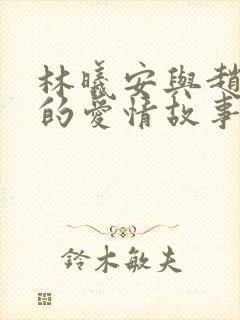 林曦安與趙
的愛情故事
鈴木敏夫